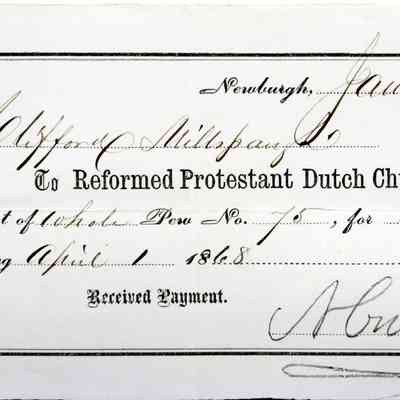 Newburgh, Jan
Clifford Millspaugh
To Reformed Protestant Dutch Chu
t of whole Pew No. 75, for
g April 1 1868
Received Payment.